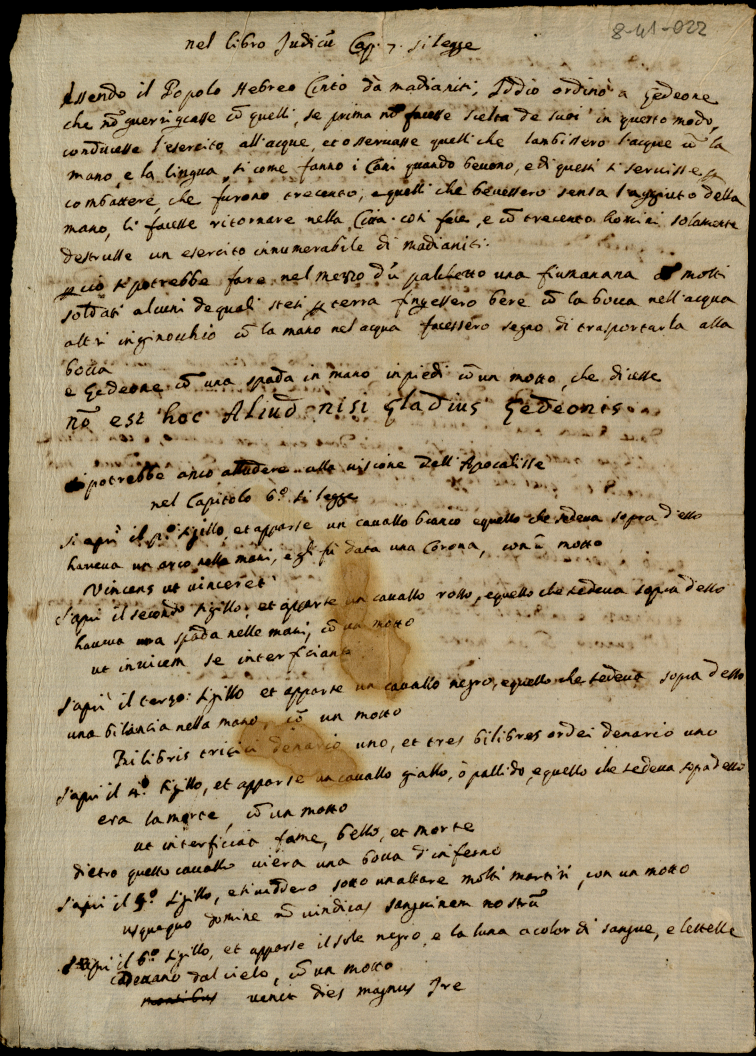 8-41-022
nel libro Judicū Cap. 7. si legge
Essendo il Popolo Hebreo Cinto da madianiti, Iddio ordinò a Gedeone
che nō guerrigiasse cō quelli, se prima nō facesse scielta de suoi in questo modo,
conducesse l'esercito all'acque, et osservasse quelli che lambissero l'acque cō la
mano, e la lingua, si come fanno i Cani quando bevono, e di questi si servisse p
combattere, che furono trecento, e quelli che bevessero senza l'aggiuto della
mano, li facesse ritornare nella Città. così fece, e cō trecento homini solamente
destrusse un esercito innumerabile di madianiti.
p ciò si potrebbe fare nel mezzo d'ū palchetto una fiumanana molti
soldati alcuni de quali stesi p terra fingessero bere cō la bocca nell'acqua
altri inginochio cō la mano nel acqua facessero segno di trasportarla alla
bocca
e Gedeone cō una spada in mano in piedi cō un motto, che dicesse
nō est hoc Aliud nisi gladius Gedeonis
si potrebbe anco alludere alla visione dell'Apocalisse
nel Capitolo 6.º si legge
si aprì il p.º sigillo, et apparse un cavallo bianco e quello che sedeva sopra d'esso
haveva un arco nella mani, e gli fù data una Corona, con ū motto
Vincens ut vinceret
S'aprì il secondo sigillo, et apparse un cavallo rosso, e quello che sedeva sopra d'esso
haveva una spada nelle mani, cō un motto
ut invicem se interficiant
S'aprì il terzo sigillo et apparse un cavallo negro, e quello che sedeva sopra d'esso
una bilancia nella mano, cō un motto
Bilibris tritici denario uno, et tres bilibres ordei denario uno
S'aprì il 4.º sigillo, et apparse un cavallo giallo, ò pallido, e quello che sedeva sopra d'esso
era la morte, cō un motto
ut interficiat fame, bello, et morte
dietro quello cavallo viera una bocca d'inferno
S'aprì il 5.º sigillo, e si viddero sotto un altare molti martiri, con un motto
usquequo domine nō vindicas sanguinem nostrū
S'aprì il 6.º sigillo, et apparse il sole negro, e la luna a color di sangue, e le stelle
cadevano dal cielo, cō un motto
venit dies magnus Ire